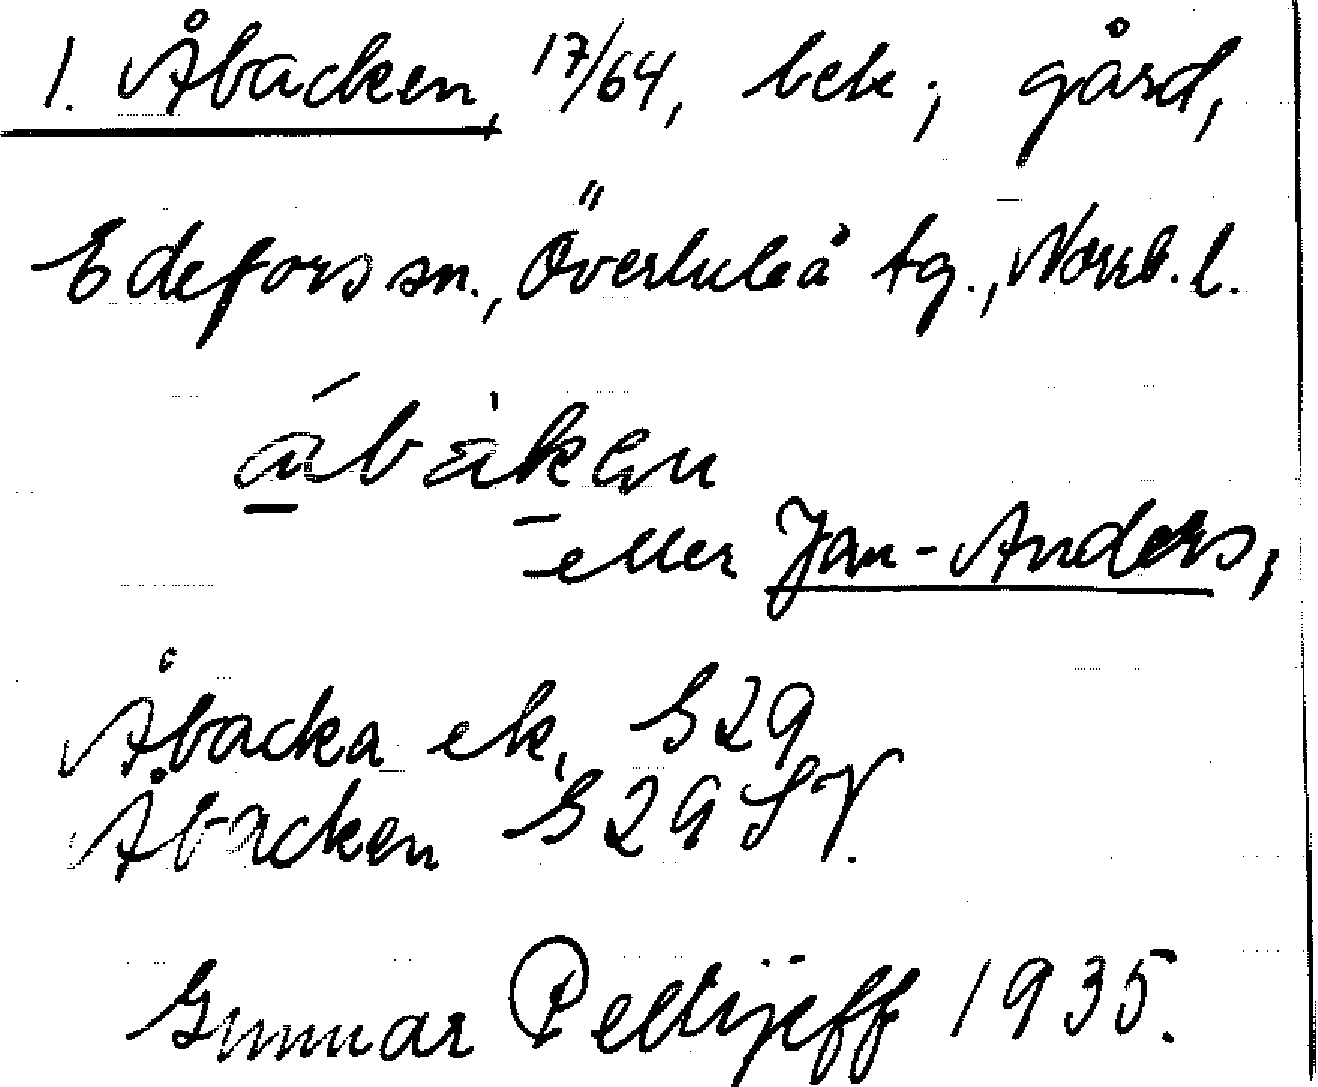 1. Åbacken, 17/64, bek.; gård,
Edefors sn., Överluleå tg., Norrb. l.
á̱bàken
eller Jan-Anders,
Åbacka ek. S29
Åbacken S29 SV.
Gunnar Pellijeff 1935.